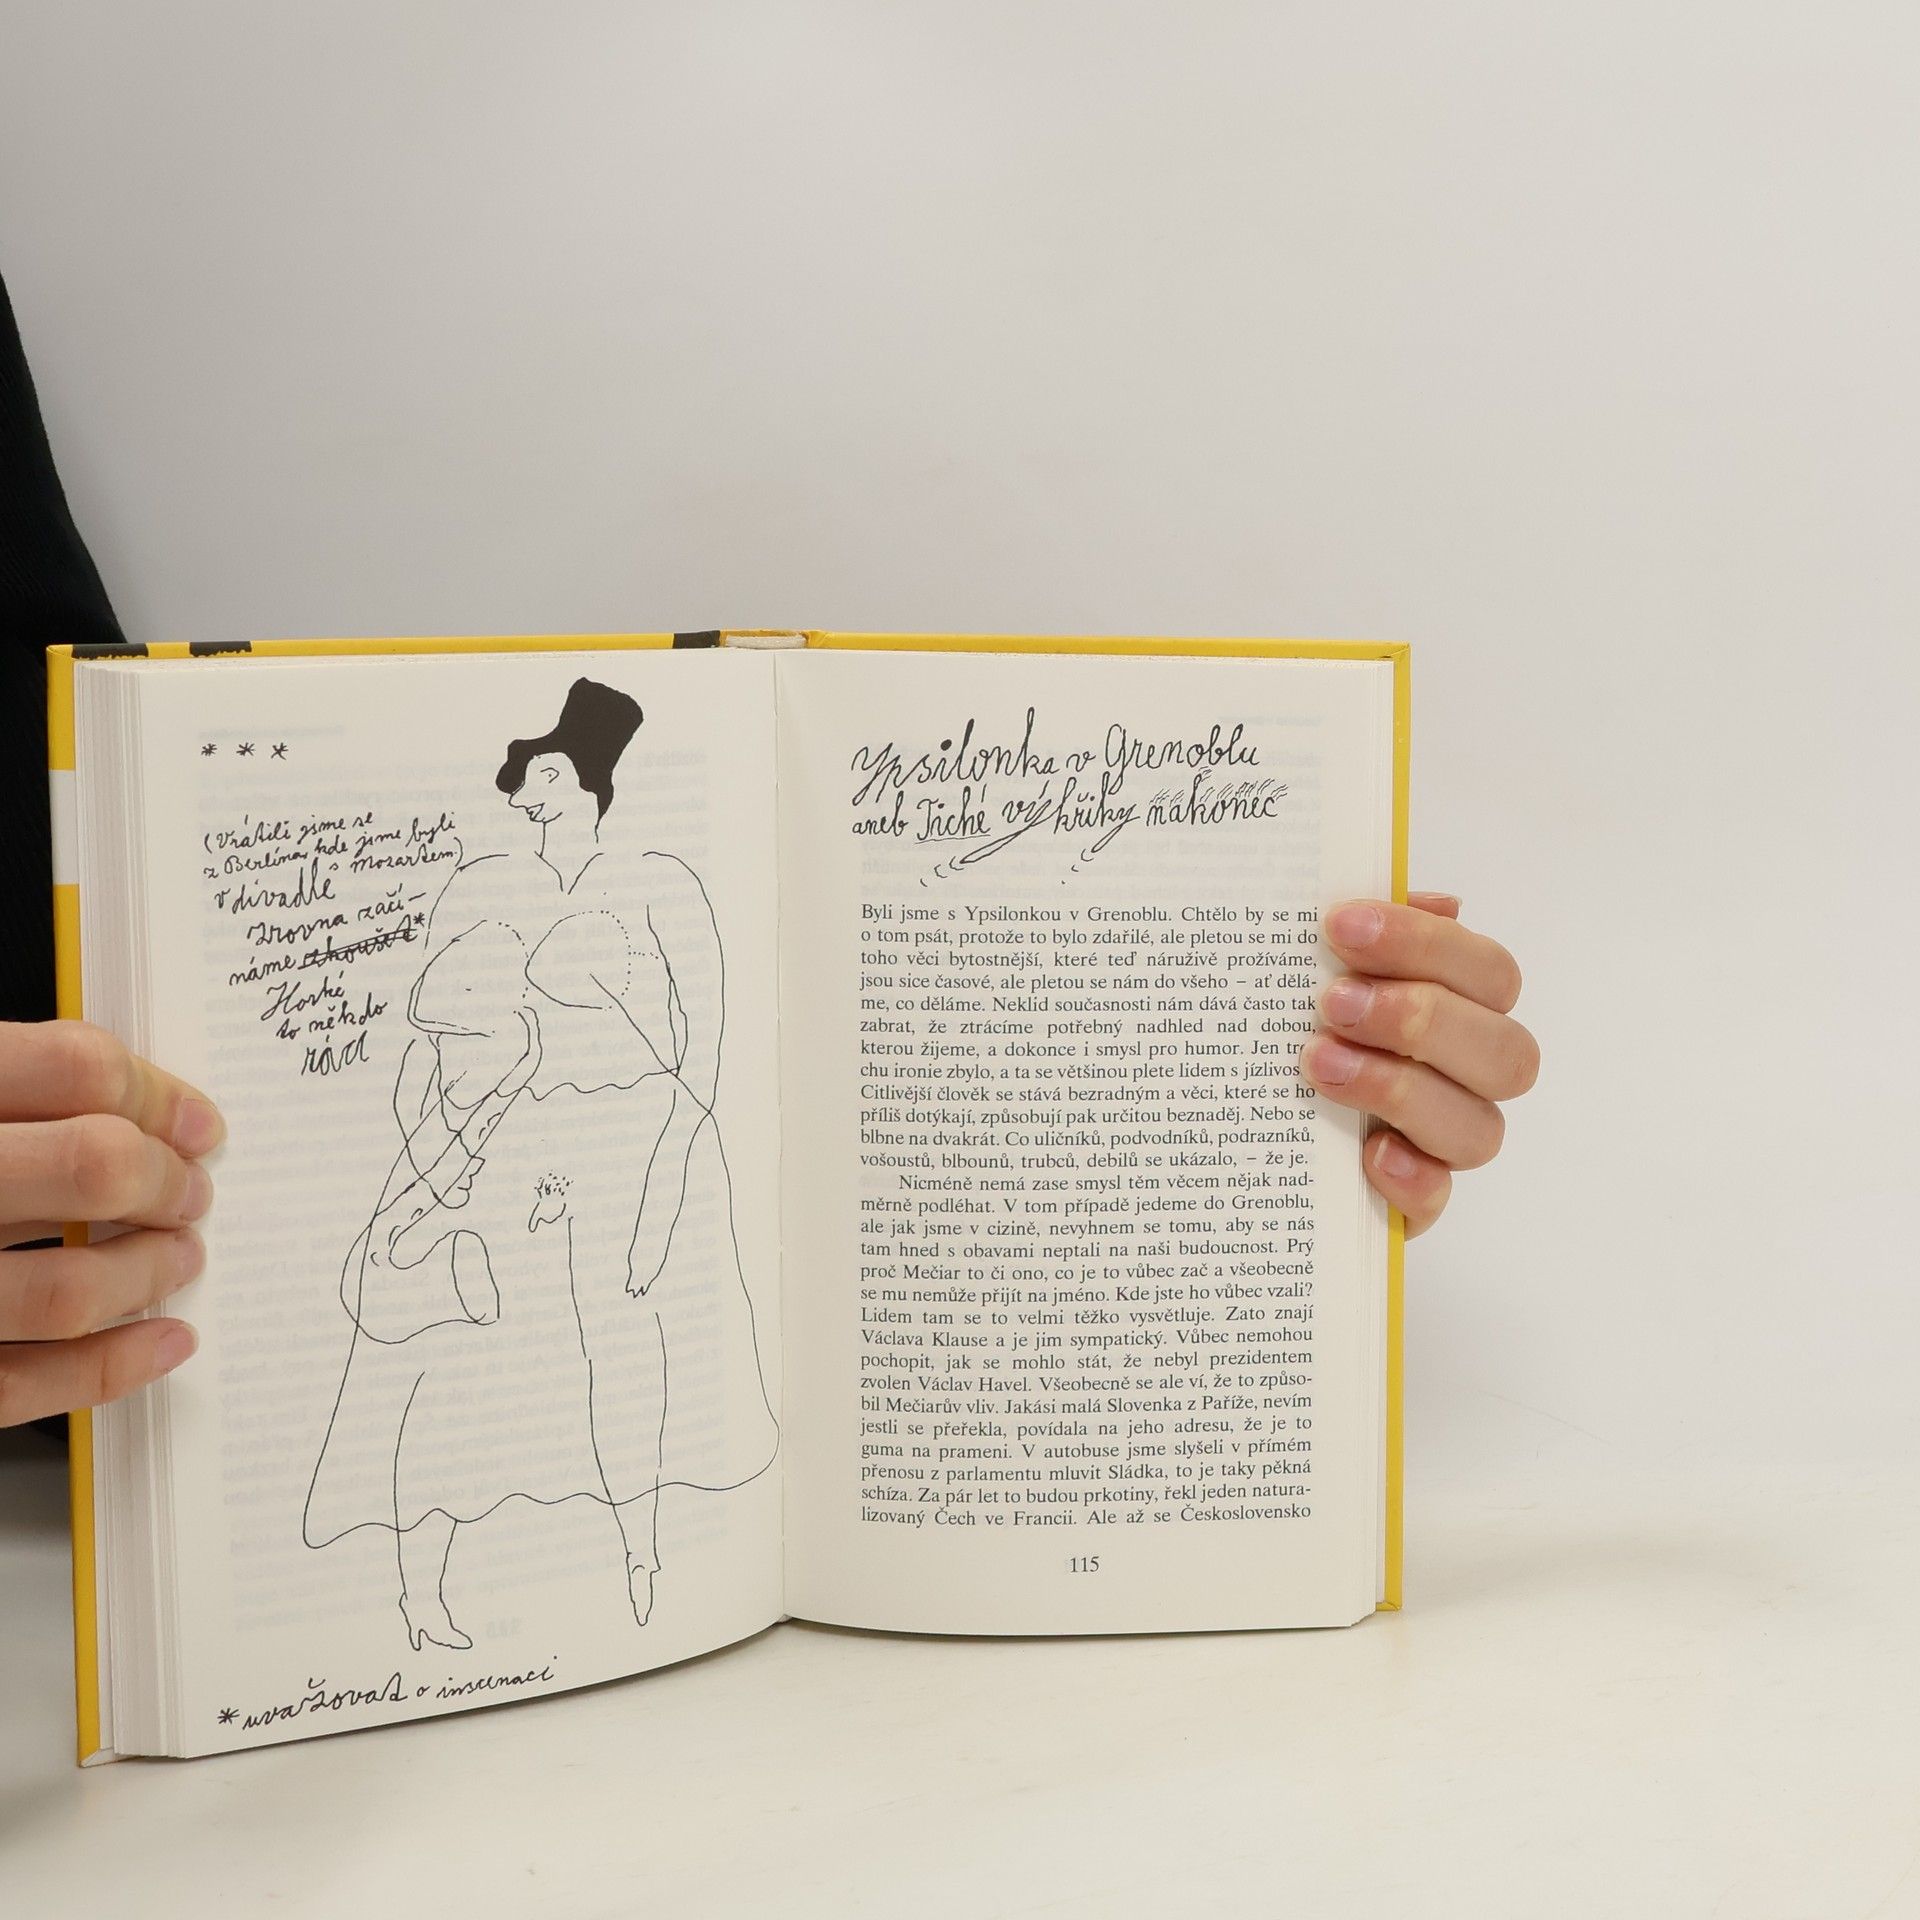 * * *
(Vrátili jsme se
z Berlína, kde jsme byli
s Mozartem.)
v divadle
zrovna začí-
náme zkoušet*
Horké
to někdo
rád
* uvažovat o inscenaci
Ypsilonka v Grenoblu
aneb Tiché výkřiky nakonec
Byli jsme s Ypsilonkou v Grenoblu. Chtělo by se mi
o tom psát, protože to bylo zdařilé, ale pletou se mi do
toho věci bytostnější, které teď náruživě prožíváme,
jsou sice časové, ale pletou se nám do všeho – ať dělá-
me, co děláme. Neklid současnosti nám dává často tak
zabrat, že ztrácíme potřebný nadhled nad dobou,
kterou žijeme, a dokonce i smysl pro humor. Jen
chu ironie zbylo, a ta se většinou plete lidem s
Citlivější člověk se stává bezradným a věci, které se ho
příliš dotýkají, způsobují pak určitou beznaděj. Nebo se
blbne na dvakrát. Co uličníků, podvodníků, podrazníků,
vošoustů, blbounů, trubců, debilů se ukázalo, – že je.
Nicméně nemá zase smysl těm věcem nějak nad-
měrně podléhat. V tom případě jedeme do Grenoblu,
ale jak jsme v cizině, nevyhnem se tomu, aby se nás
tam hned s obavami neptali na naši budoucnost. Prý
proč Mečiar to či ono, co je to vůbec zač a všeobecně
se mu nemůže přijít na jméno. Kde jste ho vůbec vzali?
Lidem tam se to velmi těžko vysvětluje. Zato znají
Václava Klause a je jim sympatický. Vůbec nemohou
pochopit, jak se mohlo stát, že nebyl prezidentem
zvolen Václav Havel. Všeobecně se ale ví, že to způso-
bil Mečiarův vliv. Jakási malá Slovenka z Paříže, nevím
jestli se přeřekla, povídala na jeho adresu, že je to
guma na prameni. V autobuse jsme slyšeli v přímém
přenosu z parlamentu mluvit Sládka, to je taky pěkná
schíza. Za pár let to budou prkotiny, řekl jeden natura-
lizovaný Čech ve Francii. Ale až se Československo
115